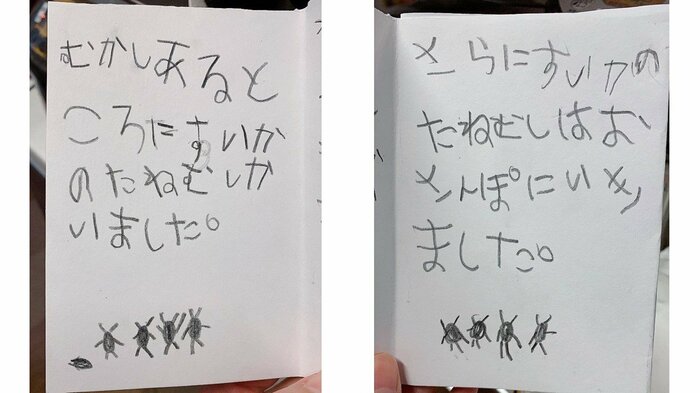 むかしあると
ころたすいか
のたねむしか
いました。
さらにすいかの
たねむしはお
さんぽにいき
ました。